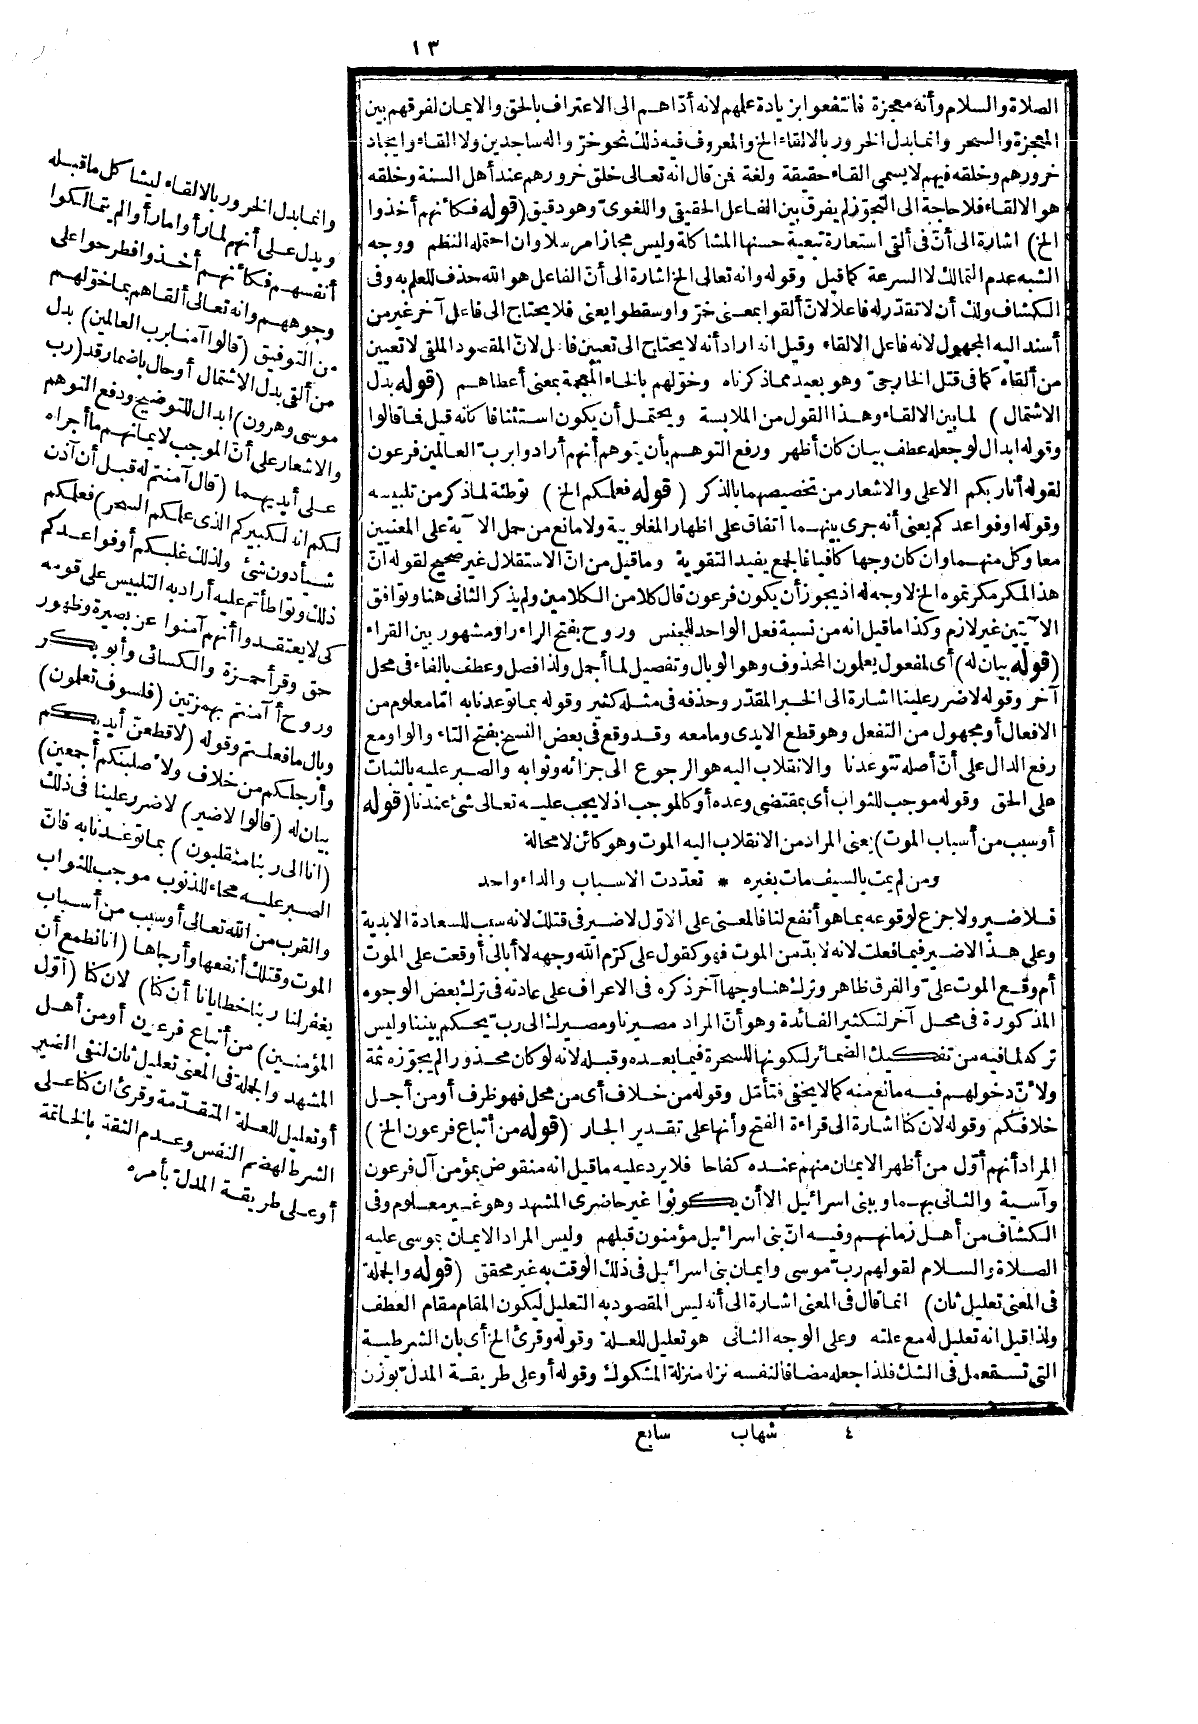 ١٣
الصلاة والسلام وأنه معجزة فانتفعوا بزيادة علمهم لانه أدّاهم الى الاعتراف بالحق والايمان لفرقهم بين
المعجزة والسحر وانما بدل الخرور بالالقاء الخ والمعروف فيه ذلك نحو خرّوا له ساجدين ولا القاء وايجاد
خرورهم وخلقه فيهم لا يسمى القاء حقيقة ولغة فمن قال انه تعالى خلق خرورهم عند أهل السنة وخلقه
هو الالقاء فلا حاجة الى التجوّز لم يفرق بين الفاعل الحقيقى واللغوى وهو دقيق (قوله فكأنهم أخذوا
الخ) اشارة الى أنّ فى ألقى استعارة تبعية حسنها المشاكلة وليس مجازا مرسلا وان احتمله النظم ووجه
الشبه عدم التمالك لا السرعة كما قيل وقوله وانه تعالى الخ اشارة الى أنّ الفاعل هو الله حذف للعلم به وفى
الكشاف ولك أن لا تقدّر له فاعلا لانّ ألقوا بمعنى خرّوا وسقطوا يعنى فلا يحتاج الى فاعل آخر غير من
أسند اليه المجهول لانه فاعل الالقاء وقيل انه اراد أنه لا يحتاج الى تعيين فاعل لانّ المقصود الملقى لا تعيين
من ألقاه كما فى قتل الخارجىّ وهو بعيد مما ذكرناه وخوّلهم بالخاء المعجمة بمعنى أعطاهم (قوله بدل
الاشتمال) لما بين الالقاء وهذا القول من الملابسة ويحتمل أن يكون استئنافا كانه قيل فما قالوا
وقوله ابدال لو جعله عطف بيان كان أظهر ورفع التوهم بأن يتوهم أنهم أرادوا برب العالمين فرعون
لقوله أنا ربكم الاعلى والاشعار من تخصيصهما بالذكر (قوله فعلكم الخ) توطئة لما ذكر من تلبيسه
وقوله اوفواعدكم يعنى أنه جرى بينهما اتفاق على اظهار المغلوبية ولا مانع من حمل الآية على المعنيين
معا وكل منهما وان كان وجها كافيا فالجمع يفيد التقوية وما قيل من انّ الاستقلال غير صحيح لقوله انّ
هذا المكر مكرتموه الخ لا وجه له اذ يجوز أن يكون فرعون قال كلا من الكلامين ولم يذكر الثانى هنا وتوافق
الآيتين غير لازم وكذا ما قيل انه من نسبة فعل الواحد للجنس وروح بفتح الراء راو مشهور بين القراء
(قوله بيان له) أى لمفعول يعلمون المحذوف وهو الوبال وتفصيل لما أجمل ولذا فصل وعطف بالفاء فى محل
آخر وقوله لا ضرر علينا اشارة الى الخبر المقدّر وحذفه فى مثله كثير وقوله بما توعدنا به امّا معلوم من
الافعال أو مجهول من التفعل وهو قطع الايدى وما معه وقد وقع فى بعض النسخ بفتح التاء والواو مع
رفع الدال على أنّ أصله تتوعدنا والانقلاب اليه هو الرجوع الى جزائه وثوابه والصبر عليه بالثبات
على الحق وقوله موجب للثواب أى بمقتضى وعده أو كالموجب اذ لا يجب عليه تعالى شئ عندنا (قوله
أو سبب من أسباب الموت) يعنى المراد من الانقلاب اليه الموت وهو كائن لا محالة
ومن لم يمت بالسيف مات بغيره * تعدّدت الاسباب والداء واحد
فلا ضير ولا جزع لوقوعه بما هو أنفع لنا فالمعنى على الاوّل لا ضير فى قتلك لانه سبب للسعادة الابدية
وعلى هذا لا ضير فيما فعلت لانه لا بدّ من الموت فهو كقول على كرّم الله وجهه لا أبالى أوقعت على الموت
أم وقع الموت علىّ والفرق ظاهر وترك هنا وجها آخر ذكره فى الاعراف على عادته فى ترك بعض الوجوه
المذكورة فى محل آخر لتكثير الفائدة وهو أنّ المراد مصيرنا ومصيرك الى رب يحكم بيننا وليس
تركه لما فيه من تفكيك الضمائر لكونها للسحرة فيما بعده وقبله لانه لو كان محذورا لم يجوّزه ثمة
ولانّ دخولهم فيه مانع منه كما لا يخفى فتأمّل وقوله من خلاف أى من محل فهو ظرف أو من أجل
خلافكم وقوله لان كنا اشارة الى قراءة الفتح وأنها على تقدير الجار (قوله من أتباع فرعون الخ)
المراد أنهم أوّل من أظهر الايمان منهم عنده كفاحا فلا يرد عليه ما قيل انه منقوض بمؤمن آل فرعون
وآسية والثانى بهما وببنى اسرائيل الا أن يكونوا غير حاضرى المشهد وهو غير معلوم وفى
الكشاف من أهل زمانهم وفيه انّ بنى اسرائيل مؤمنون قبلهم وليس المراد الايمان بموسى عليه
الصلاة والسلام لقولهم رب موسى وايمان بنى اسرائيل فى ذلك الوقت به غير محقق (قوله والجملة
فى المعنى تعليل ثان) انما قال فى المعنى اشارة الى أنه ليس المقصود به التعليل ليكون المقام مقام العطف
ولذا قيل انه تعليل له مع علته وعلى الوجه الثانى هو تعليل للعلة وقوله وقرئ الخ أى بان الشرطية
التى تستعمل فى الشك فلذا جعله مضافا لنفسه نزله منزلة المشكوك وقوله أو على طريقة المدل بوزن
٤ شهاب سابع
وانما بدل الخرور بالالقاء ليشاكل ما قبله
ويدل على أنهم لما رأوا ما رأوا لم يتمالكوا
أنفسهم فكأنهم أخذوا فطرحوا على
وجوههم وانه تعالى ألقاهم بما خوّلهم
من التوفيق (قالوا آمنا برب العالمين) بدل
من ألقى بدل الاشتمال أو حال باضمار قد (رب
موسى وهرون) ابدال للتوضيح ودفع التوهم
والاشعار على أنّ الموجب لايمانهم ما أجراه
على أيديهما (قال آمنتم له قبل أن آذن
لكم انه لكبيركم الذى علمكم السحر) فعلمكم
شيأ دون شئ ولذلك غلبكم أو فواعدكم
ذلك وتواطأتم عليه أراد به التلبيس على قومه
كى لا يعتقدوا أنهم آمنوا عن بصيرة وظهور
حق وقرأ حمزة والكسائى وأبو بكر
وروح أآمنتم بهمزتين (فلسوف تعلمون)
وبال ما فعلتم وقوله (لاقطعنّ أيديكم
وأرجلكم من خلاف ولاصلبنكم أجمعين)
بيان له (قالوا لا ضير) لا ضرر علينا فى ذلك
(انا الى ربنا منقلبون) بما توعدنا به فانّ
الصبر عليه محاء للذنوب موجب للثواب
والقرب من الله تعالى أو سبب من أسباب
الموت وقتلك أنفعها وأرجاها (انا نطمع أن
يغفر لنا ربنا خطايانا أن كنا) لان كنا (أوّل
المؤمنين) من أتباع فرعون أو من أهل
المشهد والجملة فى المعنى تعليل ثان لنفى الضير
أو تعليل للعلة المتقدّمة وقرئ ان كنا على
الشرط لهضم النفس وعدم الثقة بالخاتمة
أو على طريقة المدل بأمره